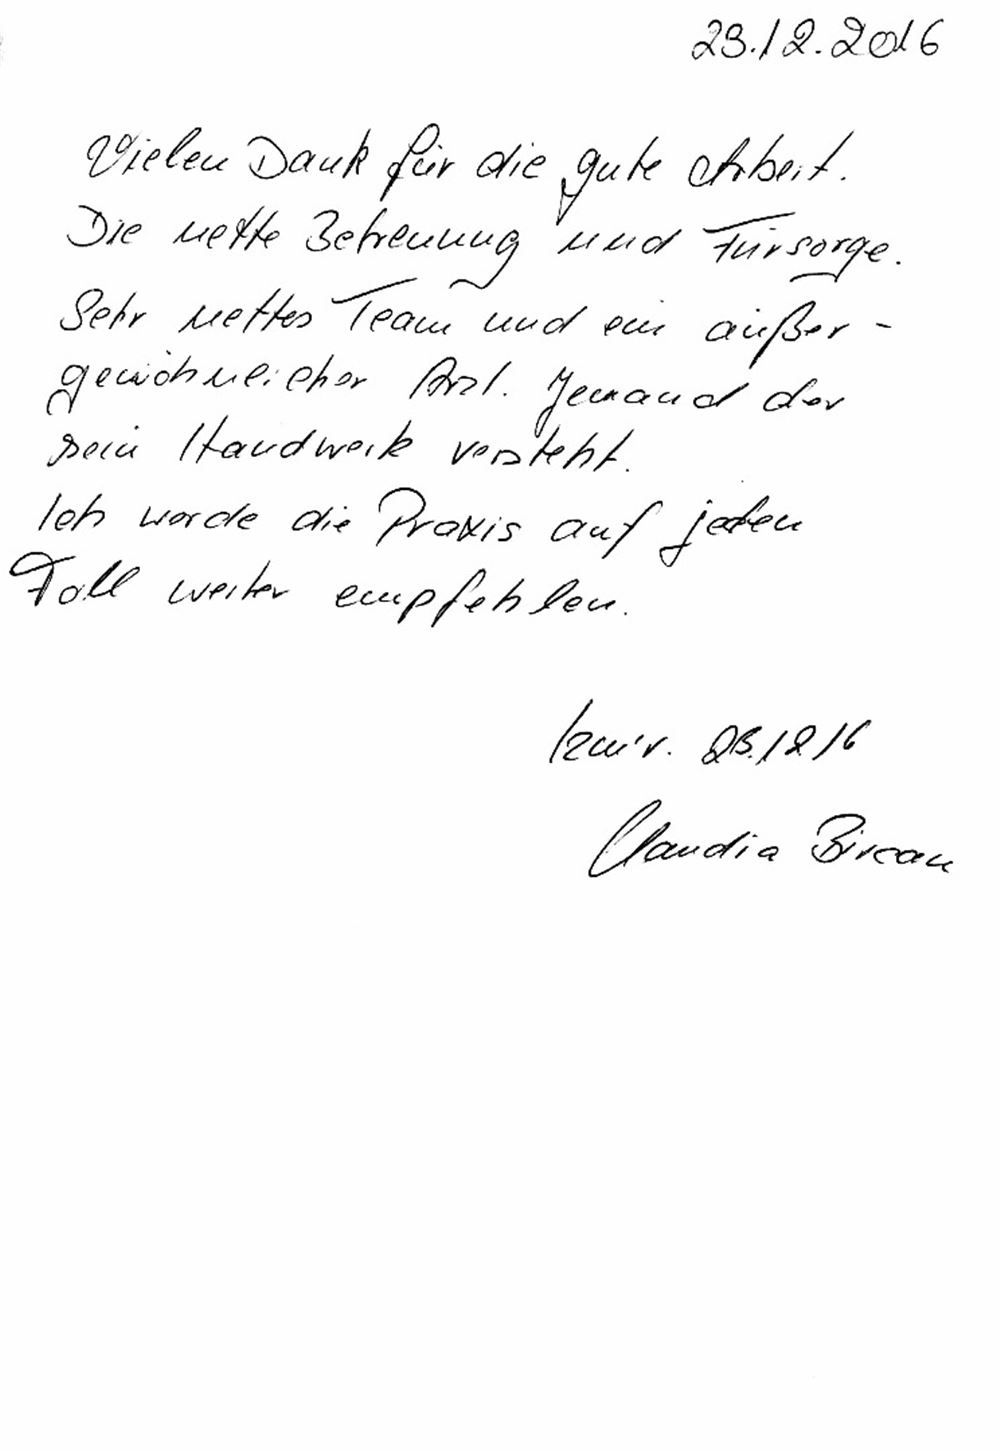 23.12.2016
Vielen Dank für die gute Arbeit.
Die nette Betreuung und Fürsorge.
Sehr nettes Team und ein außer-
gewöhnlicher Arzt. Jemand der
sein Handwerk versteht.
Ich werde die Praxis auf jeden
Fall weiter empfehlen.
Izmir. 23.12.16
Claudia Bircan